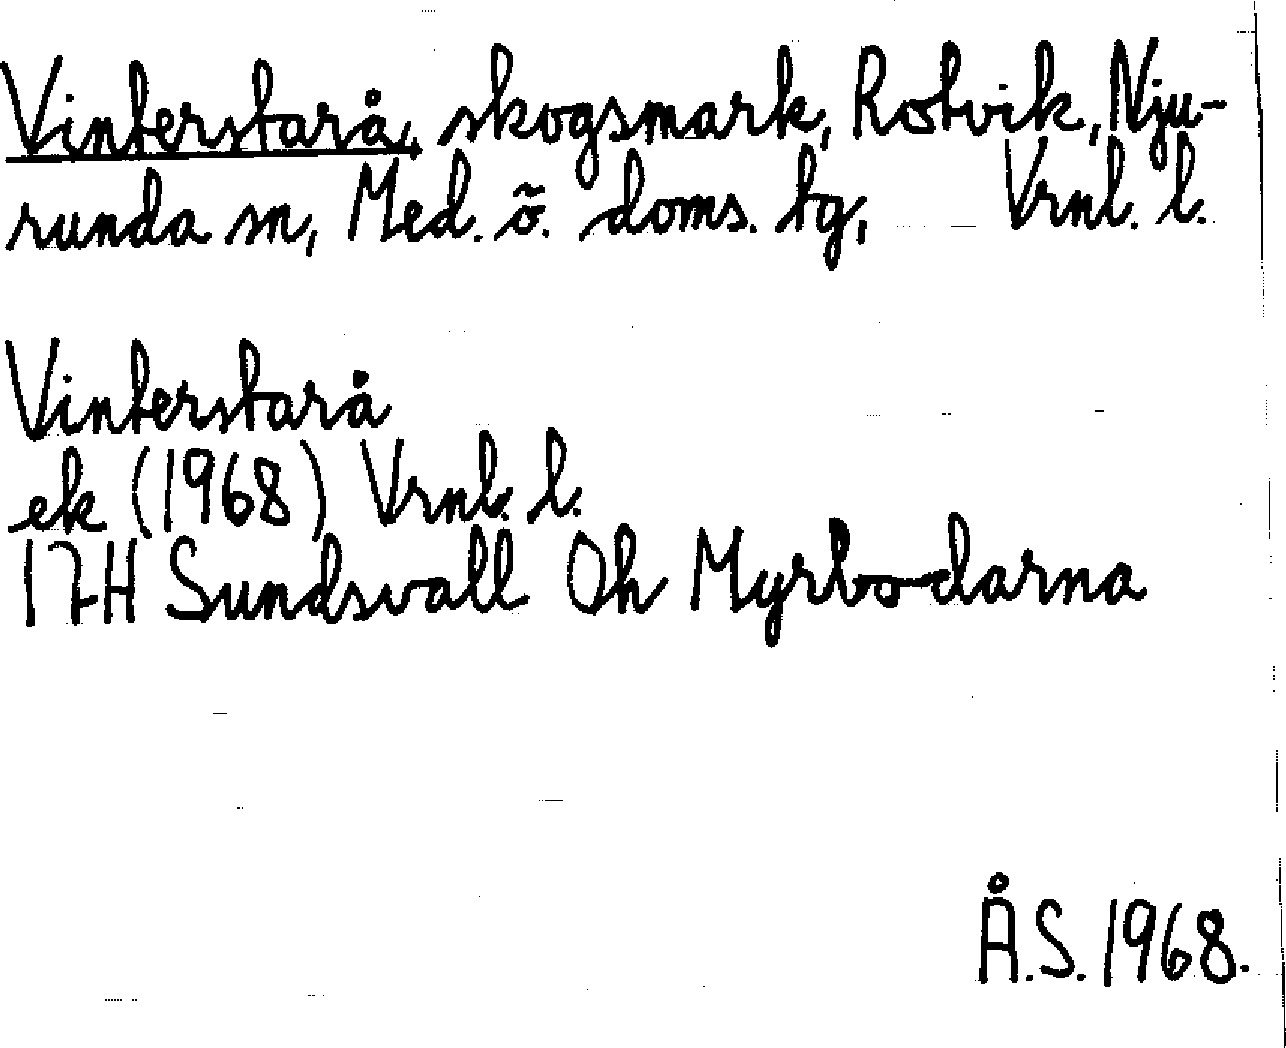 Vinterstarå, skogsmark, Rotvik, Nju-
runda sn, Med. ö. doms. tg, Vrnl. l.
Vinterstarå
ek (1968) Vrnl. l.
17H Sundsvall Oh Myrbodarna
Å.S. 1968.